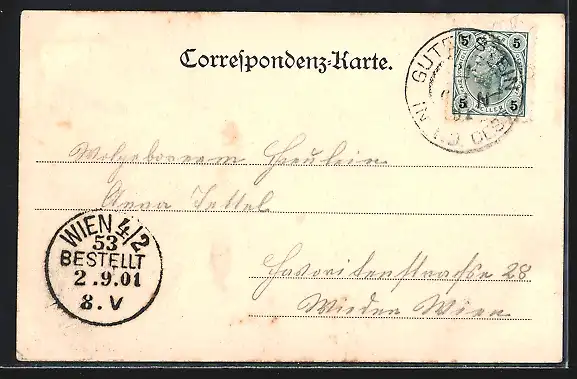 Correspondenz-Karte.
GUTENSTEIN
IN N.Ö. OEST.
5 5
5 5
Wolgeborenem Fräulein
Anna Tettel
Favoritenstrasse 28
Wieden Wien
WIEN 4/2
53
BESTELLT
2.9.01
8.V